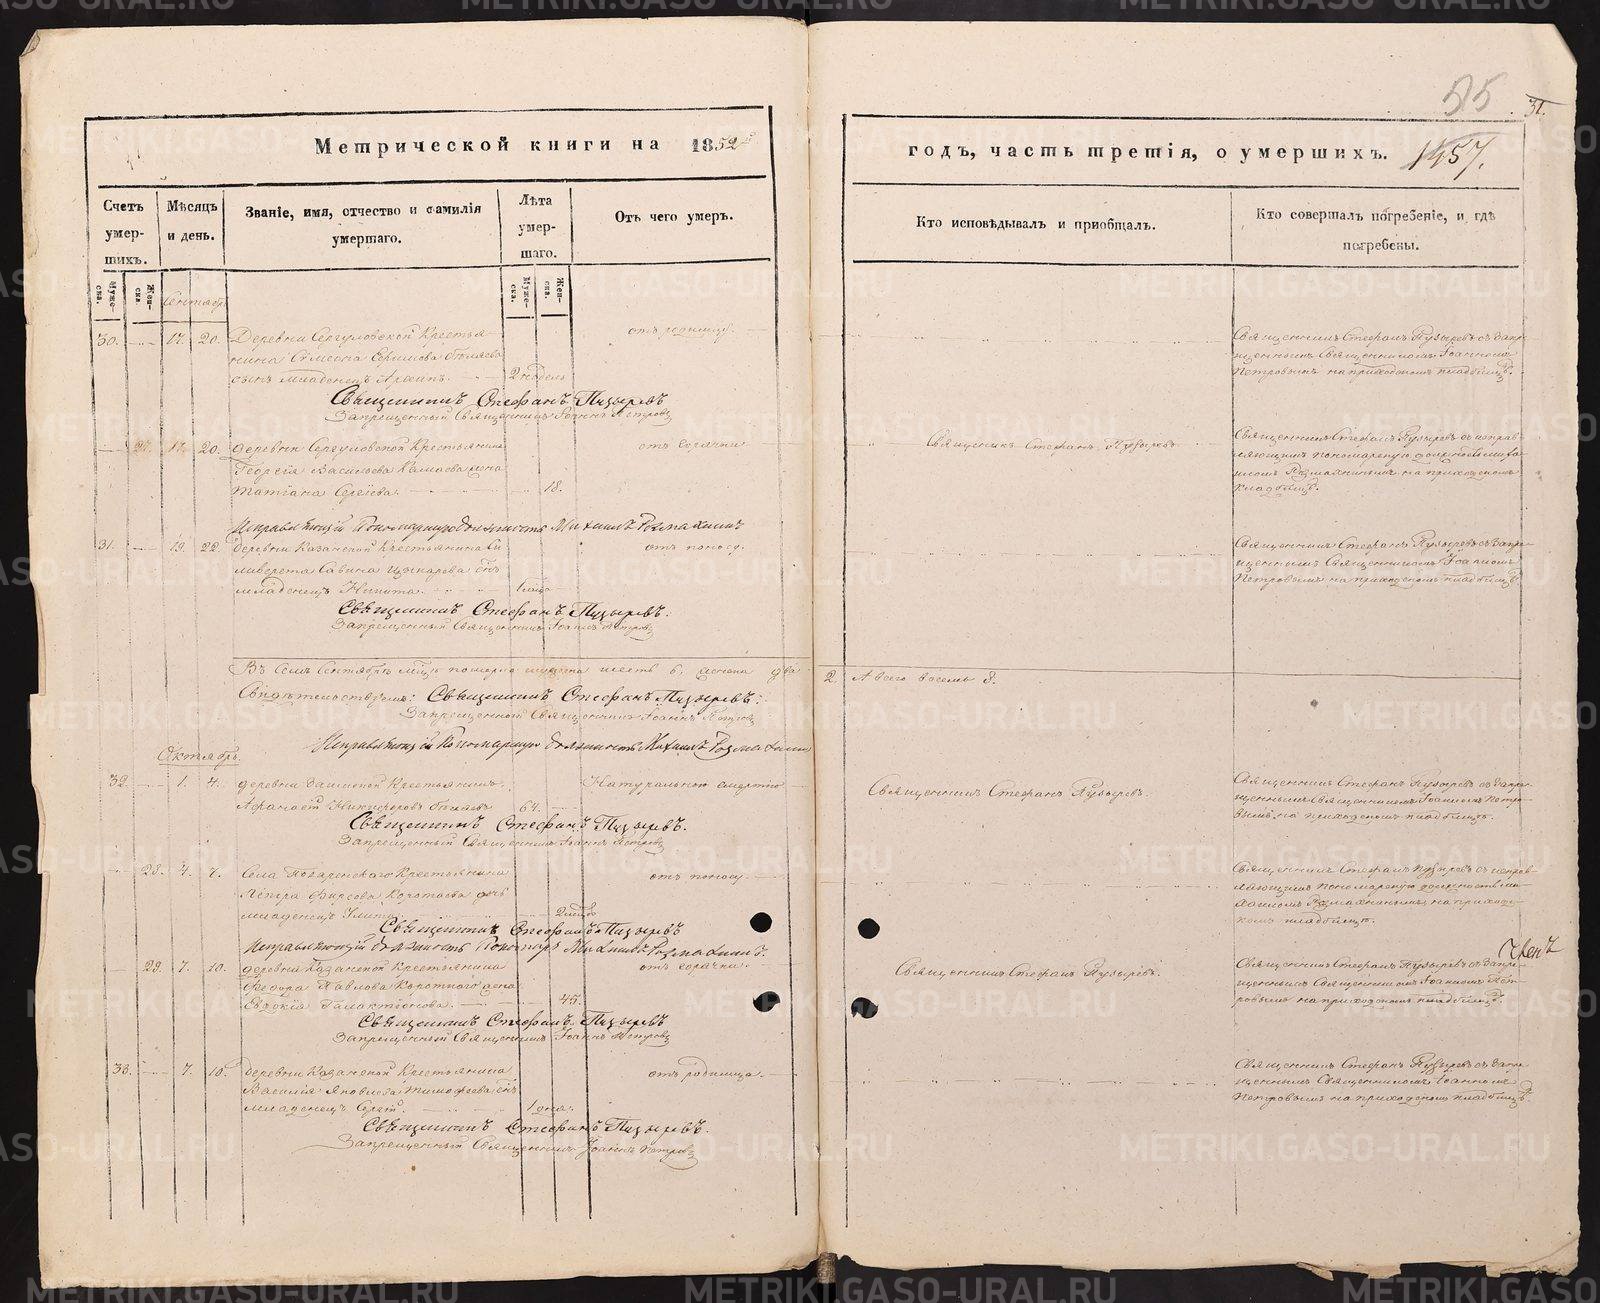 55
31.
Метрической книги на 1852й
годъ, часть третія, о умершихъ.
1457.
Счетъ умер-шихъ.
Мѣсяцъ и день.
Званіе, имя, отчество и фамилія умершаго.
Лѣта умер-шаго.
Отъ чего умеръ.
Кто исповѣдывалъ и пріобщалъ.
Кто совершалъ погребеніе, и гдѣ погребены.
Муже-ска.
Жен-ска.
Муже-ска.
Жен-ска.
Сентябрь
30. 17. 20. Деревни Сергуловской Крестья-
нина Симеона
сынъ младенецъ 2 недель
отъ родимцу.
Священникъ Стефанъ Пузыревъ съ запре-
щеннымъ Священникомъ Іоанномъ
Петровымъ на приходскомъ кладбищѣ.
Священникъ Стефанъ Пузыревъ
Запрещенный Священникъ Іоаннъ Петровъ
27. 17. 20. деревни Сергуловской Крестьянина
Георгія Васильева жена
Татіана Сергіева. 18.
отъ горячки
Священникъ Стефанъ Пузыревъ
Священникъ Стефанъ Пузыревъ съ исправ-
ляющимъ пономарскую должность Миха-
иломъ на приходскомъ
кладбищѣ.
Исправляющій Пономарскую должность Михаилъ
31. 19. 22. деревни Казанской Крестьянина Си-
ливерста Савина сынъ
младенецъ Никита.
отъ поносу.
Священникъ Стефанъ Пузыревъ съ Запре-
щеннымъ Священникомъ Іоанномъ
Петровымъ на приходскомъ кладбищѣ.
Священникъ Стефанъ Пузыревъ.
Запрещенный Священникъ Іоаннъ Петровъ
Въ семъ Сентябрѣ мѣсяцѣ померло мужеска шесть 6, женска два
2. А всего восемь 8.
Свидѣтельствуемъ: Священникъ Стефанъ Пузыревъ:
Запрещенный Священникъ Іоаннъ Петровъ
Исправляющій Пономарскую должность Михаилъ
Октябрь.
32. 1. 4. деревни Крестьянинъ
Афанасій Никифоровъ 64.
Натуральною смертію
Священникъ Стефанъ Пузыревъ.
Священникъ Стефанъ Пузыревъ съ Запре-
щеннымъ Священникомъ Іоанномъ Петро-
вымъ на приходскомъ кладбищѣ.
Священникъ Стефанъ Пузыревъ.
Запрещенный Священникъ Іоаннъ Петровъ
28. 4. 7. Села Крестьянина
Петра Фирсова Коротаева дочь
младенецъ Улита
отъ поносу
Священникъ Стефанъ Пузыревъ съ исправ-
ляющимъ пономарскую должность Ми-
хаиломъ на приход-
скомъ кладбищѣ.
Священникъ Стефанъ Пузыревъ
Исправляющій должность Пономаря Михаилъ
29. 7. 10. деревни Казанской Крестьянина
Федора Павлова Короткого жена
Евдокія Галактіонова. 45.
отъ горячки.
Священникъ Стефанъ Пузыревъ.
Священникъ Стефанъ Пузыревъ съ Запре-
щеннымъ Священникомъ Іоанномъ Пет-
ровымъ на приходскомъ кладбищѣ.
Священникъ Стефанъ Пузыревъ
Запрещенный Священникъ Іоаннъ Петровъ
33. 7. 10. деревни Казанской Крестьянина
Василія Яковлева Тимофеева сынъ
младенецъ Сергій. 1 дня.
отъ родимца.
Священникъ Стефанъ Пузыревъ съ Запре-
щеннымъ Священникомъ Іоанномъ
Петровымъ на приходскомъ кладбищѣ.
Священникъ Стефанъ Пузыревъ.
Запрещенный Священникъ Іоаннъ Петровъ
METRIKI.GASO-URAL.RU